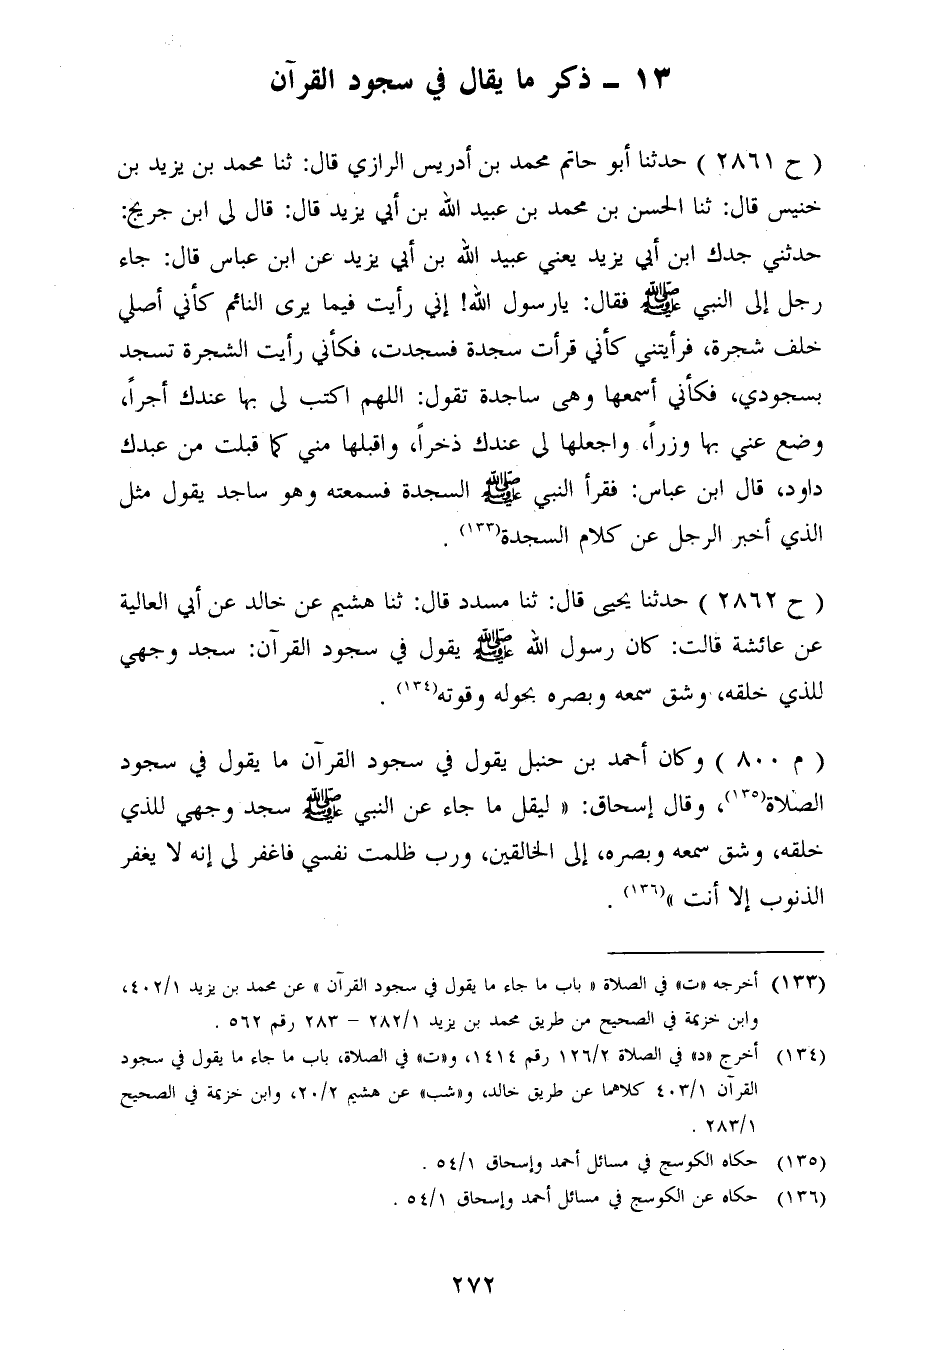 ١٣ ـ ذكر ما يقال في سجود القرآن
( ح ٢٨٦١ ) حدثنا أبو حاتم محمد بن أدريس الرازي قال: ثنا محمد بن يزيد بن
خنيس قال: ثنا الحسن بن محمد بن عبيد الله بن أبي يزيد قال: قال لي ابن جريج:
حدثني جدك ابن أبي يزيد يعني عبيد الله بن أبي يزيد عن ابن عباس قال: جاء
رجل إلى النبي ﷺ فقال: يارسول الله! إني رأيت فيما يرى النائم كأني أصلي
خلف شجرة، فرأيتني كأني قرأت سجدة فسجدت، فكأني رأيت الشجرة تسجد
بسجودي، فكأني أسمعها وهى ساجدة تقول: اللهم اكتب لي بها عندك أجراً،
وضع عني بها وزراً، واجعلها لي عندك ذخراً، واقبلها مني كما قبلت من عبدك
داود، قال ابن عباس: فقرأ النبي ﷺ السجدة فسمعته وهو ساجد يقول مثل
الذي أخبر الرجل عن كلام السجدة(١٣٣) .
( ح ٢٨٦٢ ) حدثنا يحيى قال: ثنا مسدد قال: ثنا هشيم عن خالد عن أبي العالية
عن عائشة قالت: كان رسول الله ﷺ يقول في سجود القرآن: سجد وجهي
للذي خلقه، وشق سمعه وبصره بحوله وقوته(١٣٤) .
( م ٨٠٠ ) وكان أحمد بن حنبل يقول في سجود القرآن ما يقول في سجود
الصلاة(١٣٥)، وقال إسحاق: « ليقل ما جاء عن النبي ﷺ سجد وجهي للذي
خلقه، وشق سمعه وبصره، إلى الخالقين، ورب ظلمت نفسي فاغفر لي إنه لا يغفر
الذنوب إلا أنت »(١٣٦) .
(١٣٣) أخرجه «ت» في الصلاة « باب ما جاء ما يقول في سجود القرآن » عن محمد بن يزيد ٤٠٢/١،
وابن خزيمة في الصحيح من طريق محمد بن يزيد ٢٨٢/١ – ٢٨٣ رقم ٥٦٢ .
(١٣٤) أخرج «د» في الصلاة ١٢٦/٢ رقم ١٤١٤، و«ت» في الصلاة، باب ما جاء ما يقول في سجود
القرآن ٤٠٣/١ كلاهما عن طريق خالد، و«شب» عن هشيم ٢٠/٢، وابن خزيمة في الصحيح
٢٨٣/١ .
(١٣٥) حكاه الكوسج في مسائل أحمد وإسحاق ٥٤/١ .
(١٣٦) حكاه عن الكوسج في مسائل أحمد وإسحاق ٥٤/١ .
٢٧٢